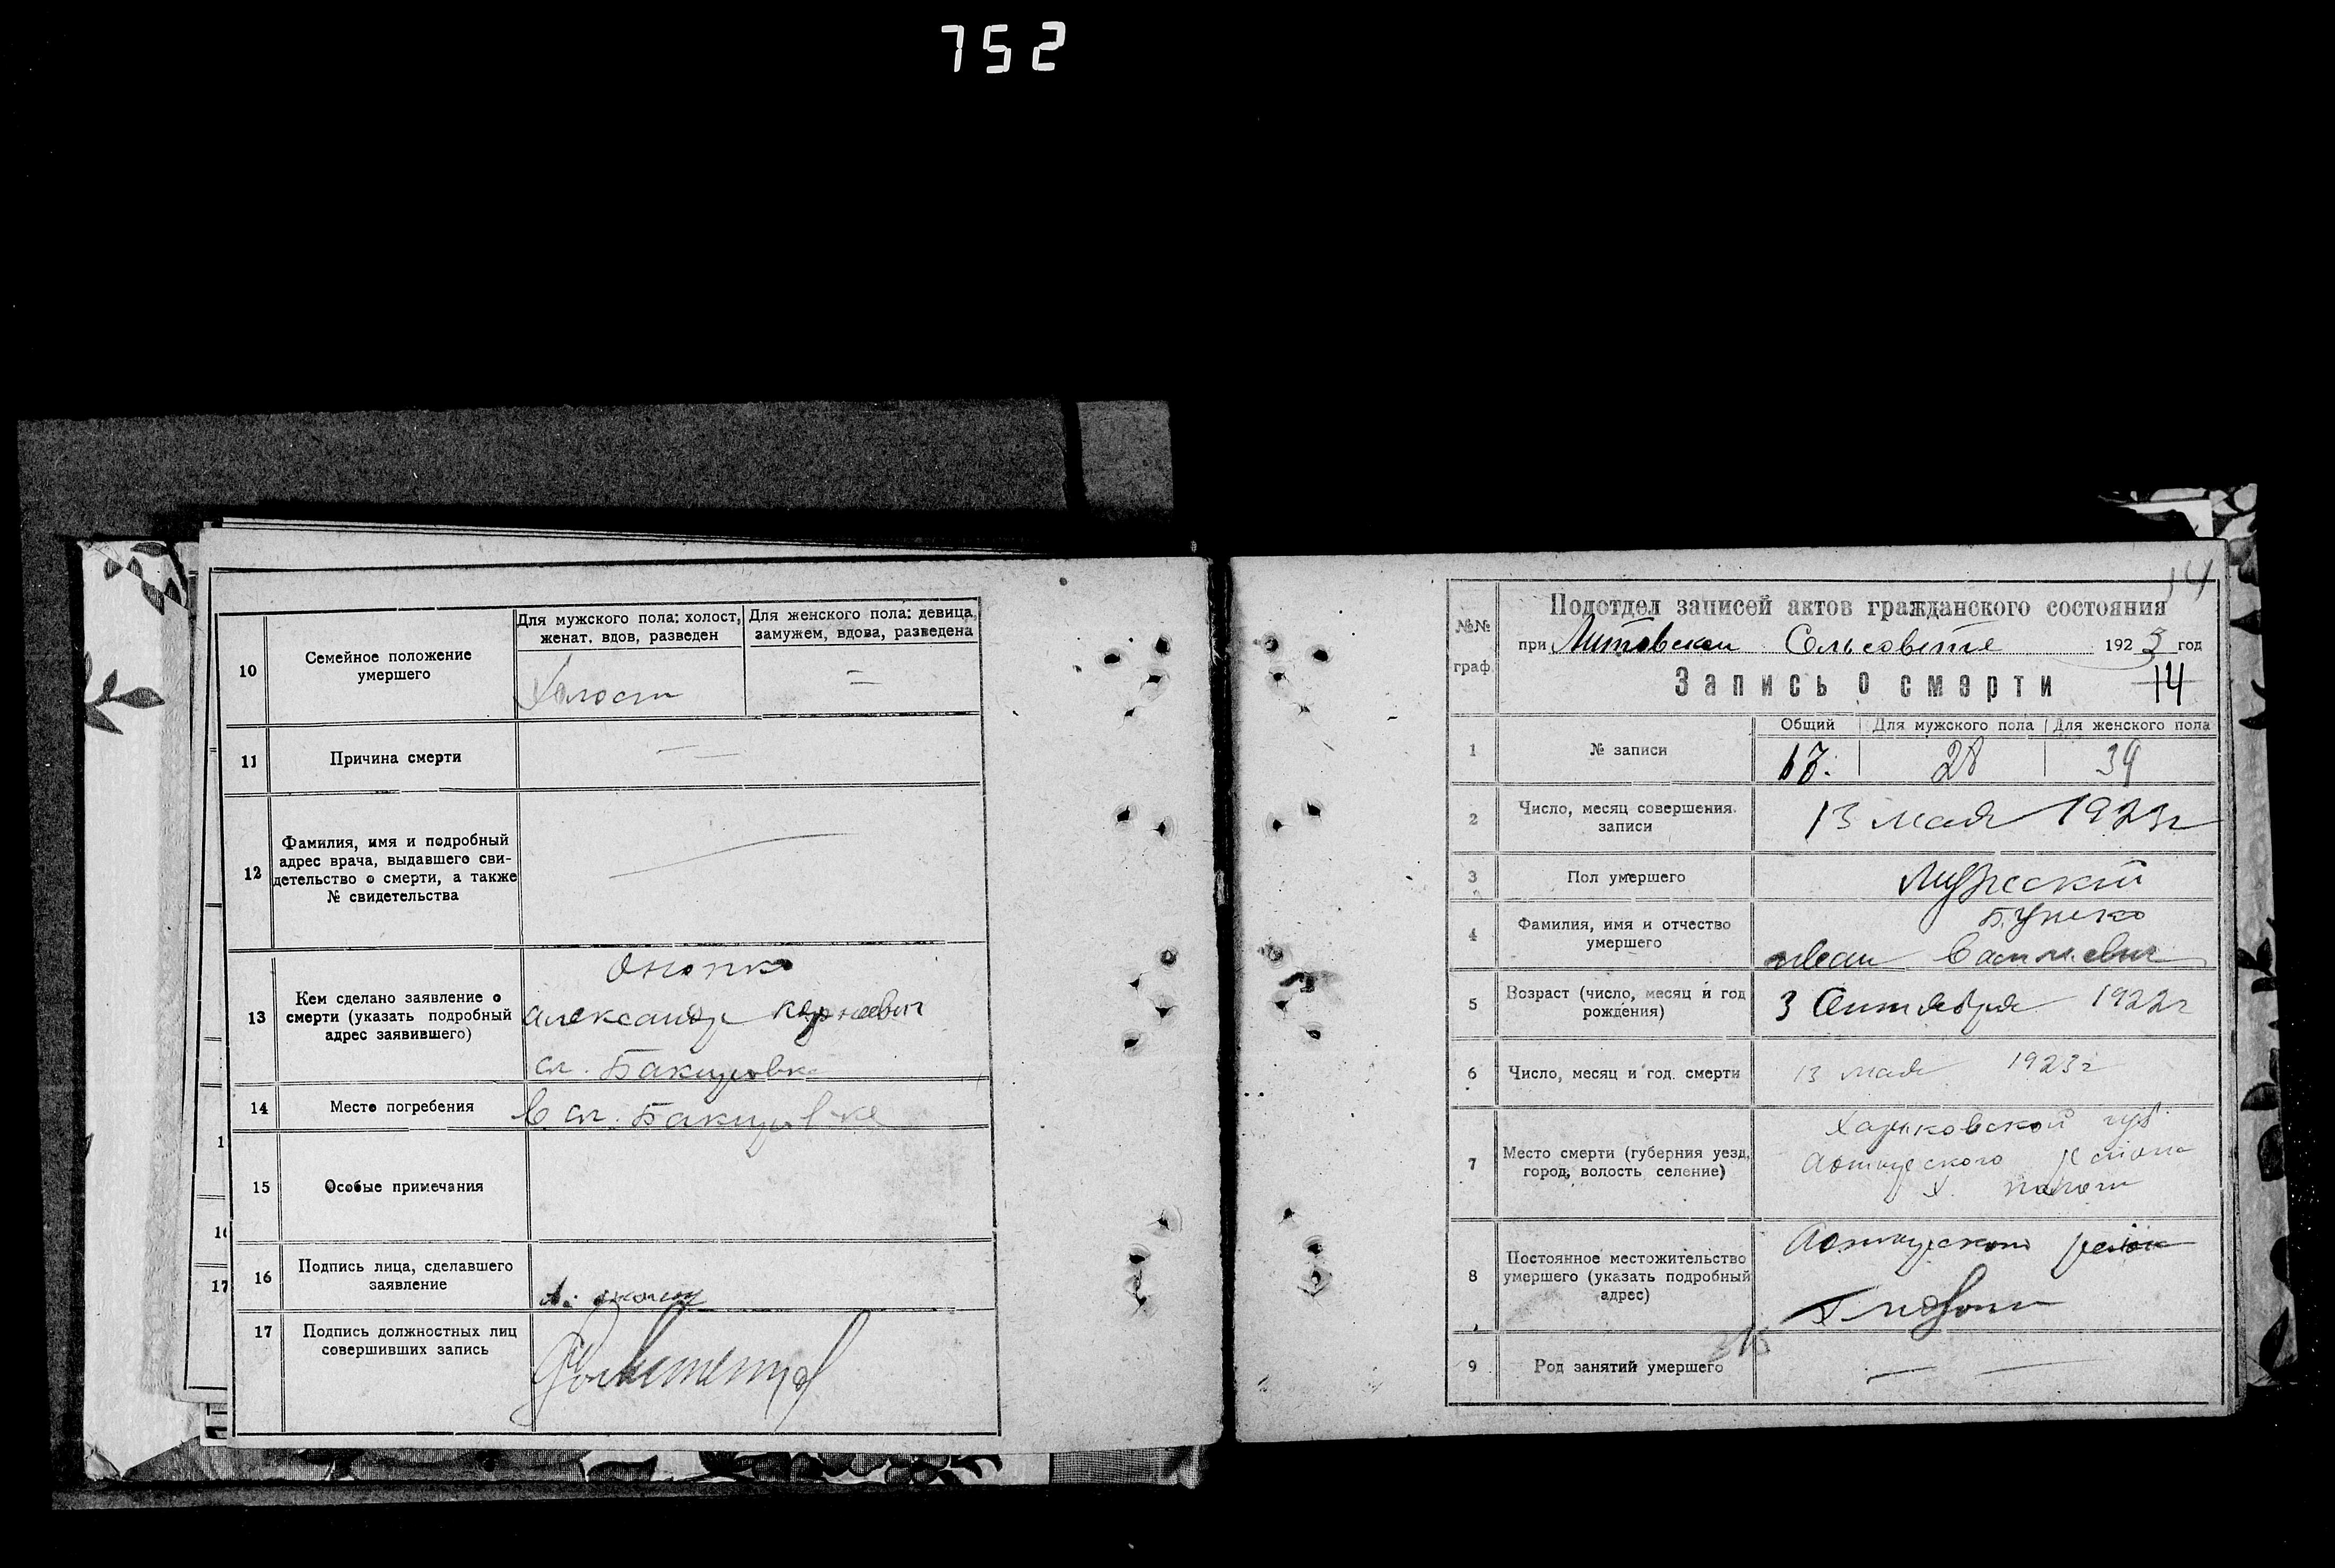 752
10
Семейное положение
умершего
Для мужского пола: холост,
женат, вдов, разведен
Для женского пола: девица,
замужем, вдова, разведена
Холост
=
11
Причина смерти
— —
12
Фамилия, имя и подробный
адрес врача, выдавшего сви-
детельство о смерти, а также
№ свидетельства
—
13
Кем сделано заявление о
смерти (указать подробный
адрес заявившего)
Онопко
Александр Карпович
сл. Бакировка
14
Место погребения
в сл. Бакировке
15
Особые примечания
16
Подпись лица, сделавшего
заявление
А.
17
Подпись должностных лиц
совершивших запись
1
16
17
14
№№
граф.
Подотдел записей актов гражданского состояния
при Литовском Сельсовете 1923 год
Запись о смерти
14
1
№ записи
Общий
Для мужского пола
Для женского пола
28
34
2
Число, месяц совершения
записи
13 мая 1923 г
3
Пол умершего
Мужской
4
Фамилия, имя и отчество
умершего
иван Василиевич
5
Возраст (число, месяц и год
рождения)
3 Сентября 1922 г
6
Число, месяц и год смерти
13 мая 1923 г
7
Место смерти (губерния уезд,
город, волость селение)
Харьковской губ
Ахтырского района
х.
8
Постоянное местожительство
умершего (указать подробный
адрес)
Ахтырского района
9
Род занятий умершего
— —